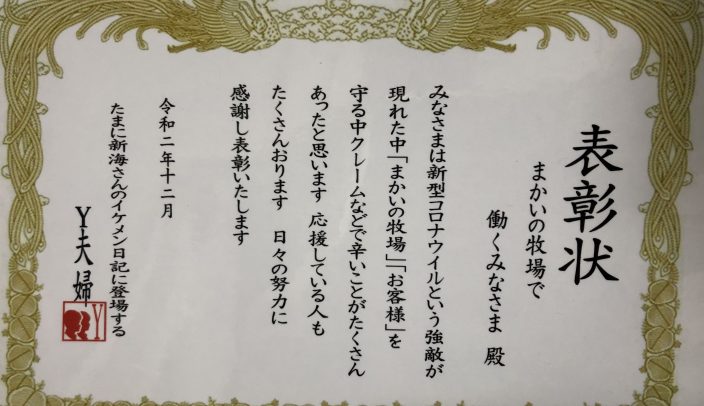 表彰状
まかいの牧場で
働くみなさま 殿
みなさまは新型コロナウイルという強敵が
現れた中「まかいの牧場」「お客様」を
守る中クレームなどで辛いことがたくさん
あったと思います 応援している人も
たくさんおります 日々の努力に
感謝し表彰いたします
令和二年十二月
たまに新海さんのイケメン日記に登場する
Y夫婦
Y